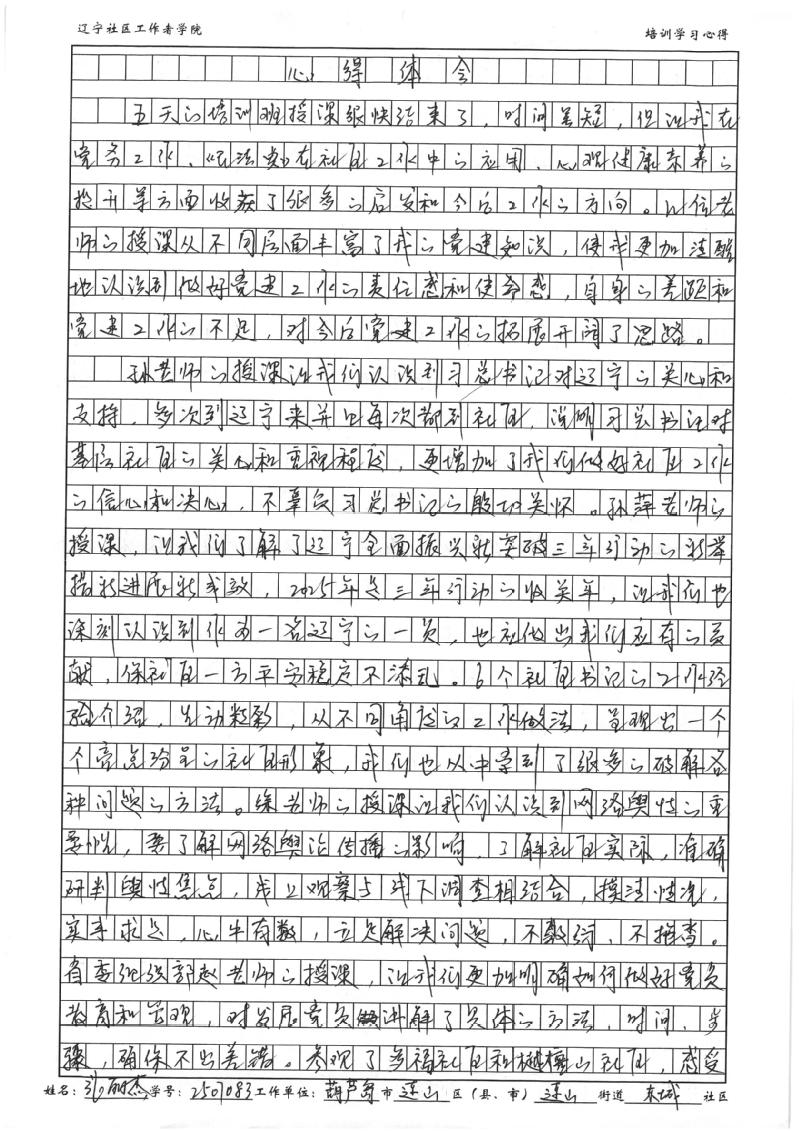 辽宁社区工作者学院 培训学习心得
心得体会
五天的培训班授课很快结束了，时间虽短，但让我在
党务工作、《民法典》在社区工作中的应用、心理健康素养的
提升等方面收获了很多的启发和今后工作的方向。几位老
师的授课从不同层面丰富了我的党建知识，使我更加清醒
地认识到做好党建工作的责任感和使命感，自身的差距和
党建工作的不足，对今后党建工作的拓展开阔了思路。
孙老师的授课让我们认识到习总书记对辽宁的关心和
支持，多次到辽宁来并且每次都到社区，说明习总书记对
基层社区的关心和重视程度，更增加了我们做好社区工作
的信心和决心，不辜负习总书记的殷切关怀。孙萍老师的
授课，让我们了解了辽宁全面振兴新突破三年行动的新举
措新进展新成效，2025年是三年行动的收关年，让我们也
深刻认识到作为一名辽宁的一员，也应做出我们应有的贡
献，保社区一方平安稳定不添乱。6个社区书记的工作经
验介绍，生动精彩，从不同角度谈工作做法，呈现出一个
个亮点纷呈的社区形象，我们也从中学到了很多的破解各
种问题的方法。徐老师的授课让我们认识到网络舆情的重
要性，要了解网络舆论传播的影响，了解社区实际，准确
研判舆情焦点，线上观察与线下调查相结合，摸清情况，
实事求是，心中有数，立足解决问题，不敷衍，不推责。
省委组织部赵老师的授课，让我们更加明确如何做好党员
教育和管理，对发展党员讲解了具体的方法，时间，步
骤，确保不出差错。参观了多福社区和山社区，感受
姓名：张丽杰 学号：2501083 工作单位：葫芦岛 市 连山 区（县、市） 连山 街道 东城 社区